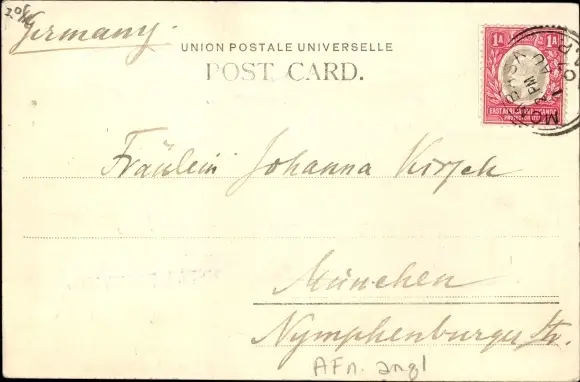 Germany.
UNION POSTALE UNIVERSELLE
POST CARD.
1A 1A
EAST AFRICA AND UGANDA
PROTECTORATES
Fräulein Johanna Kirsch
München
Nymphenburger Str.
AFn. angl